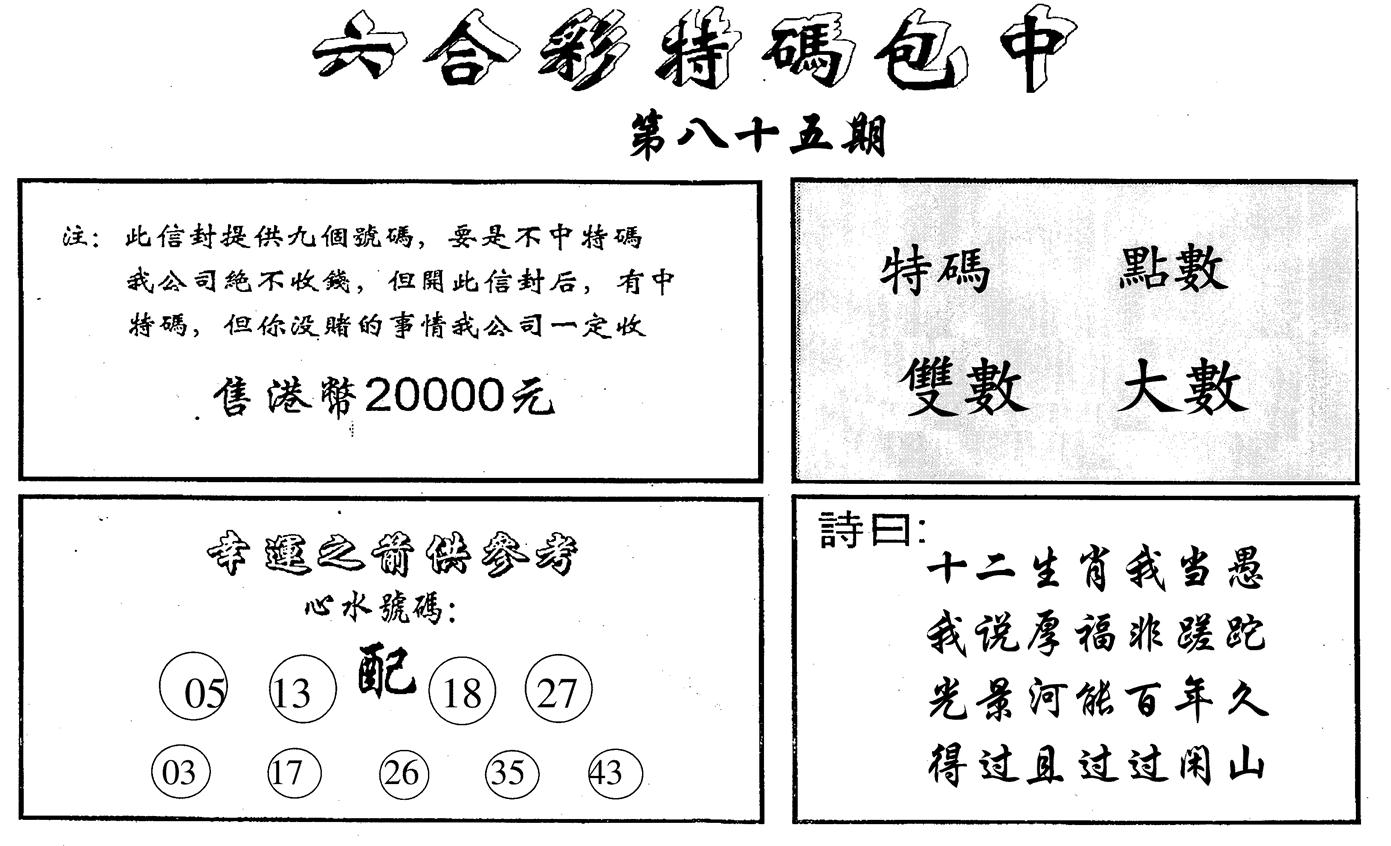 六合彩特碼包中
第八十五期
注：此信封提供九個號碼，要是不中特碼
我公司絕不收錢，但開此信封后，有中
特碼，但你没賭的事情我公司一定收
售港幣20000元
特碼 點數
雙數 大數
幸運之箭供參考
心水號碼：
05 13 配 18 27
03 17 26 35 43
詩曰：
十二生肖我当愚
我说厚福非蹉跎
光景河能百年久
得过且过过闲山